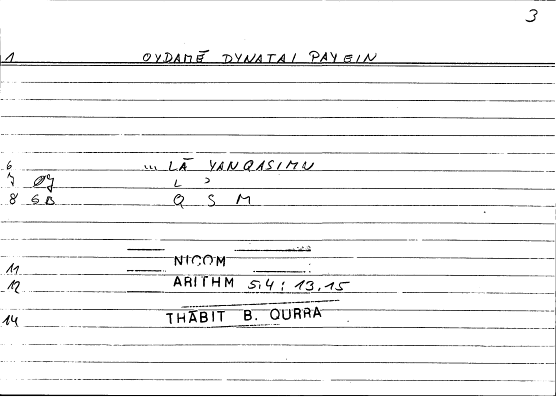 3
1 OYDAMĒ DYNATAI PAYEIN
6 ... LĀ YANQASIMU
7 07 L ɔ
8 SB Q S M
11 NICOM
12 ARITHM 5.4 : 13.15
14 THĀBIT B. QURRA